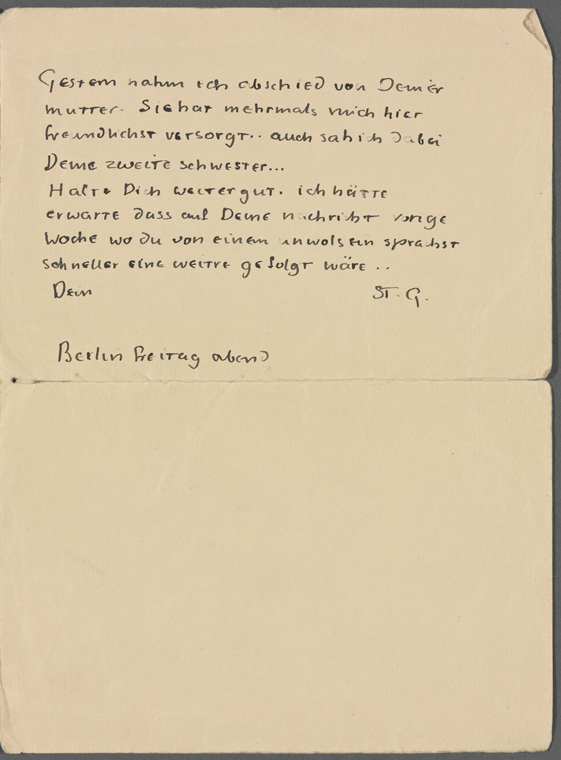 Gestern nahm ich abschied von Deiner
mutter. Sie hat mehrmals mich hier
freundlichst versorgt.. auch sah ich dabei
Deine zweite schwester...
Halte Dich weiter gut. ich hätte
erwarte dass auf Deine nachricht vorige
Woche wo du von einem unwolsein sprachst
schneller eine weitre gefolgt wäre ..
Dein St. G.
Berlin freitag abend